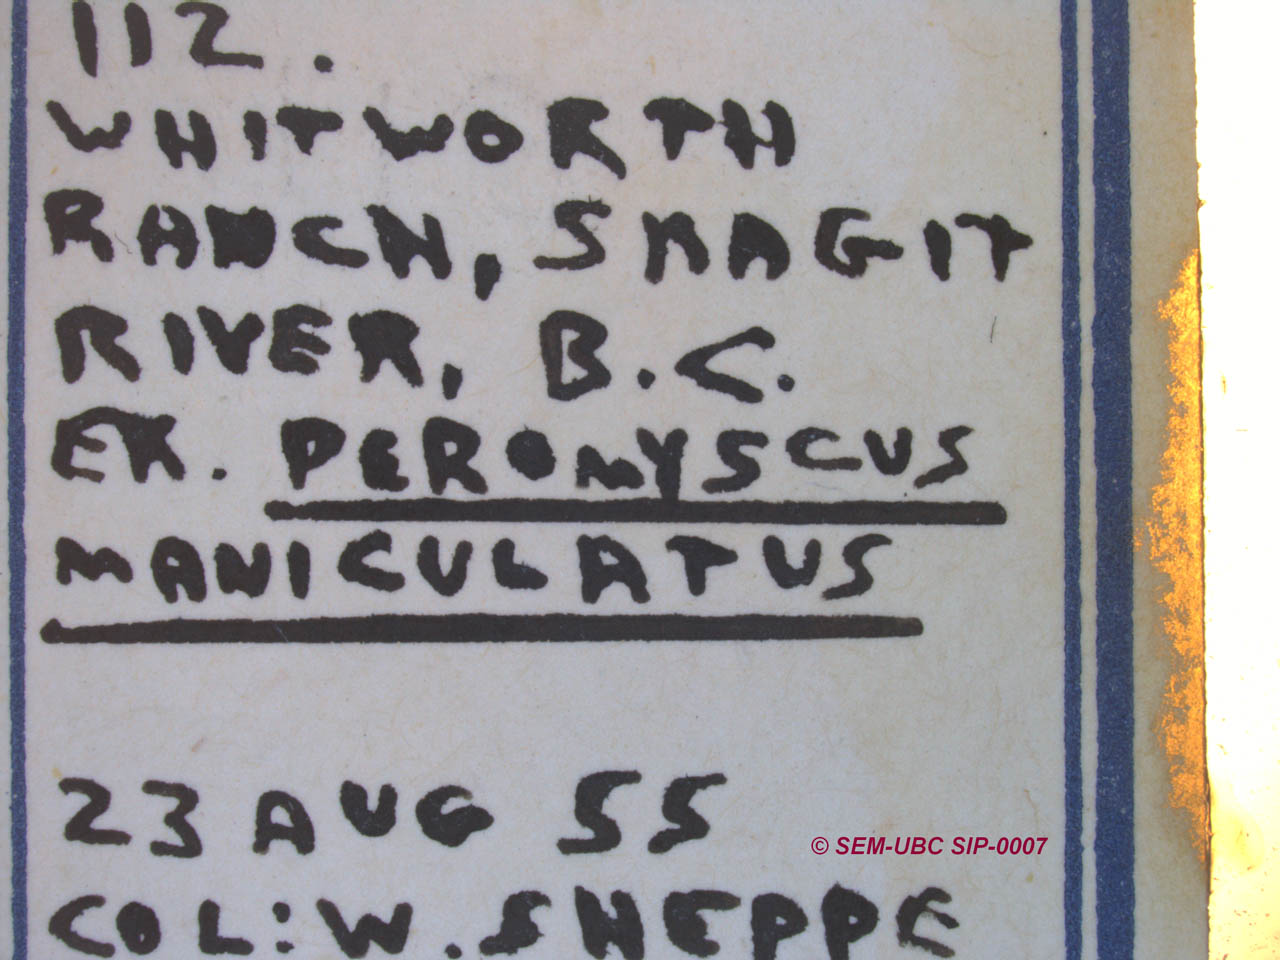 112.
WHITWORTH
RANCH, SKAGIT
RIVER, B.C.
EX. PEROMYSCUS
MANICULATUS
23 AUG 55
© SEM-UBC SIP-0007
COL: W. SHEPPE